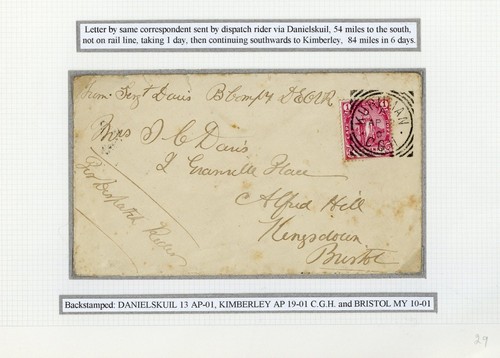 Letter by same correspondent sent by dispatch rider via Danielskuil, 54 miles to the south,
not on rail line, taking 1 day, then continuing southwards to Kimberley, 84 miles in 6 days.
From Sergt Davis B Compy DEOVR
KURUMAN
AP
C.G.H
Mrs J C Davis
2 Granville Place
Alfred Hill
Kingsdown
Bristol
Per Dispatch Rider
Backstamped: DANIELSKUIL 13 AP-01, KIMBERLEY AP 19-01 C.G.H. and BRISTOL MY 10-01
29